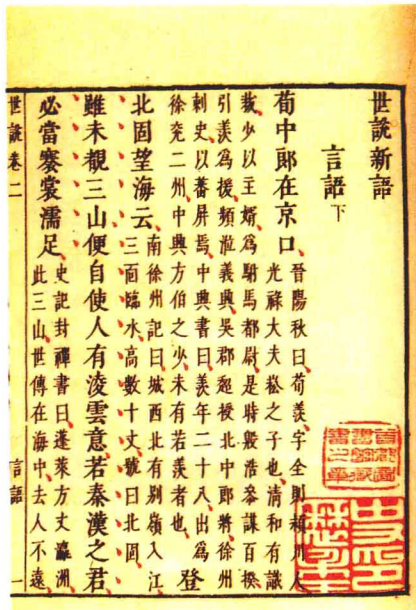 世說新語
言語下
荀中郎在京口晉陽秋曰荀羨字令則潁川人
光祿大夫崧之子也清和有識
裁少以主婿為駙馬都尉是時殷浩參謀百揆
引羨為援頻蒞義興吳郡超授北中郎將徐州
刺史以蕃屏焉中興書曰羨年二十八出為
徐兗二州中興方伯之少未有若羨者也登
北固望海云南徐州記曰城西北有別嶺入江
三面臨水高數十丈號曰北固
雖未覩三山便自使人有淩雲意若秦漢之君
必當褰裳濡足史記封禪書曰蓬萊方丈瀛洲
此三山世傳在海中去人不遠
世說卷二
言語
一